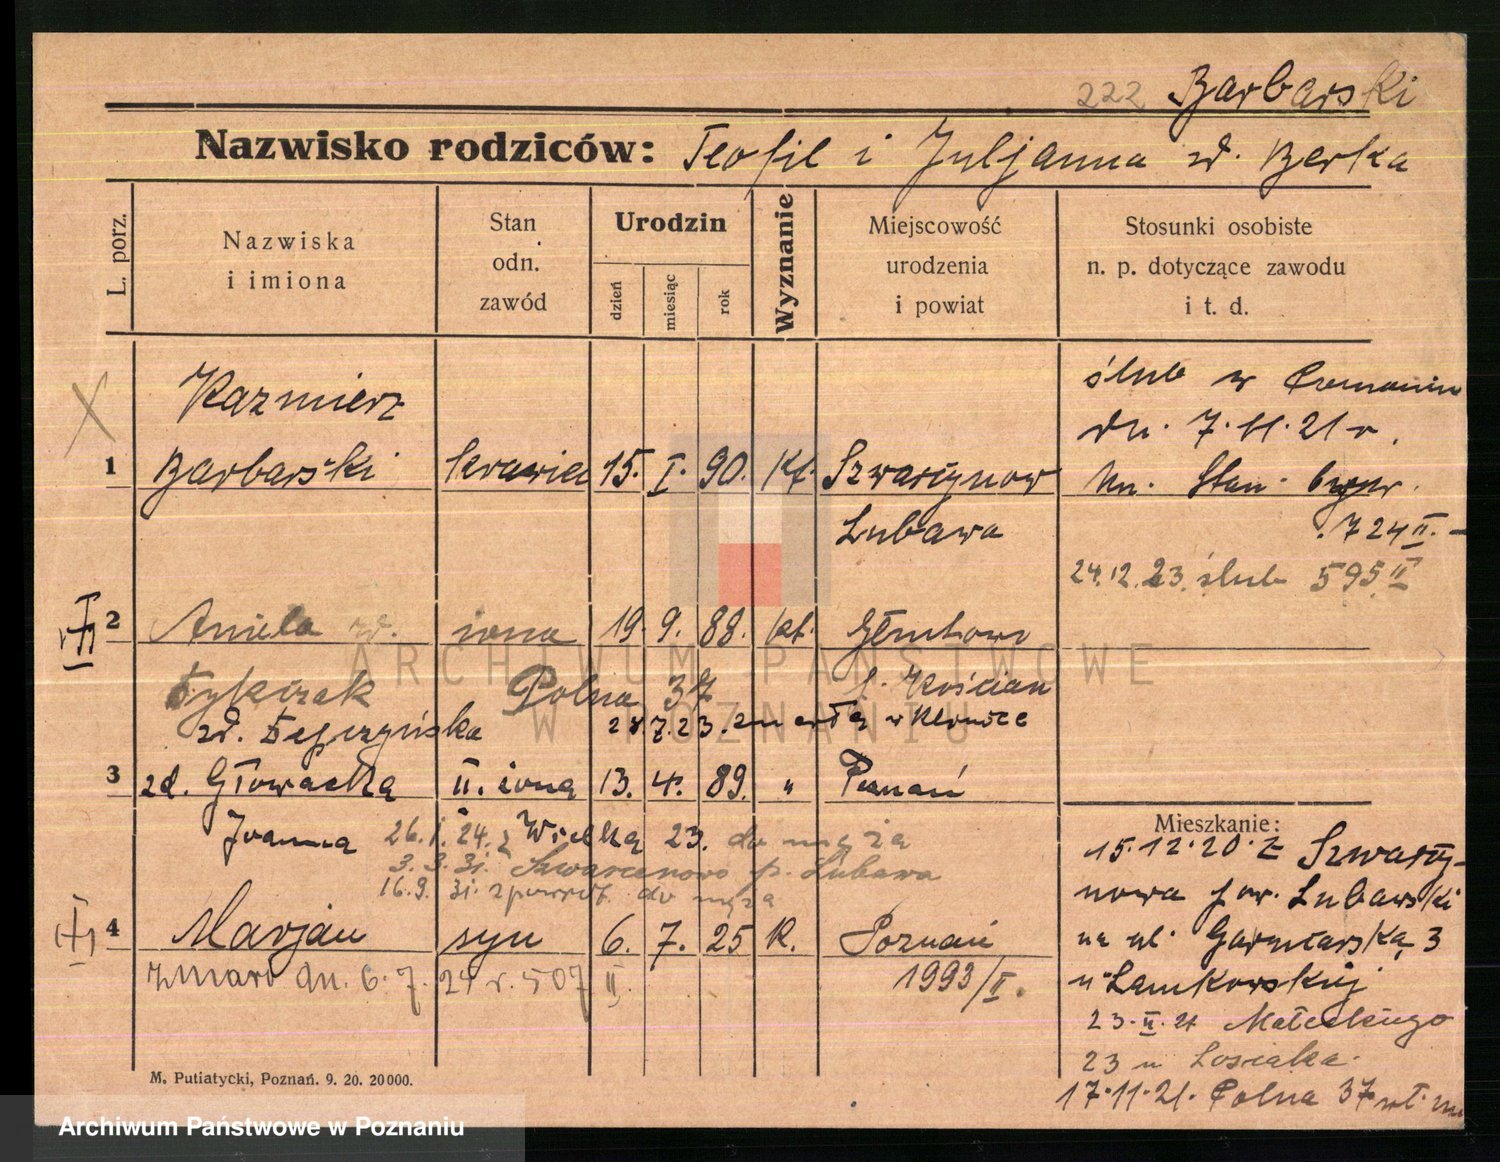 222 Barbarski
Nazwisko rodziców: Teofil i Juljanna zd. Berka
L. porz.
Nazwiska i imiona
Stan odn. zawód
Urodzin
dzień
miesiąc
rok
Wyznanie
Miejscowość urodzenia i powiat
Stosunki osobiste n. p. dotyczące zawodu i t. d.
Kazmierz
1 Barbarski krawiec 15. I. 90. Kt. Szwarcynow
Lubawa
ślub w
dn. 7.11.21 r.
Un. Stan.
724 II. -
24.12.23. ślub 595 II
2 Aniela zd. żona 19. 9. 88. kt.
Polna 37 p. Kościan
28.7.23. zmarła w
3 zd. Głowacka II. żona 13. 4. 89. " Poznań
Joanna 26.1.24. z Wielką 23. do męża
3.3.31. Szwarcenowo p. Lubawa
16.9.31. z powrot. do męża
4 Marjan syn 6. 7. 25 K. Poznań
zmarł dn. 6.7. 24 r. 507 II 1993/I.
Mieszkanie:
15.12.20. z Szwarcy-
nowa pow. Lubawski
na ul. Garncarską 3
u Lamkowskiej
23.II.21 Małeckiego
23 u
17.11.21. Polna 37 wł. m
M. Putiatycki, Poznań. 9. 20. 20000.
ARCHIWUM PAŃSTWOWE
W POZNANIU
Archiwum Państwowe w Poznaniu